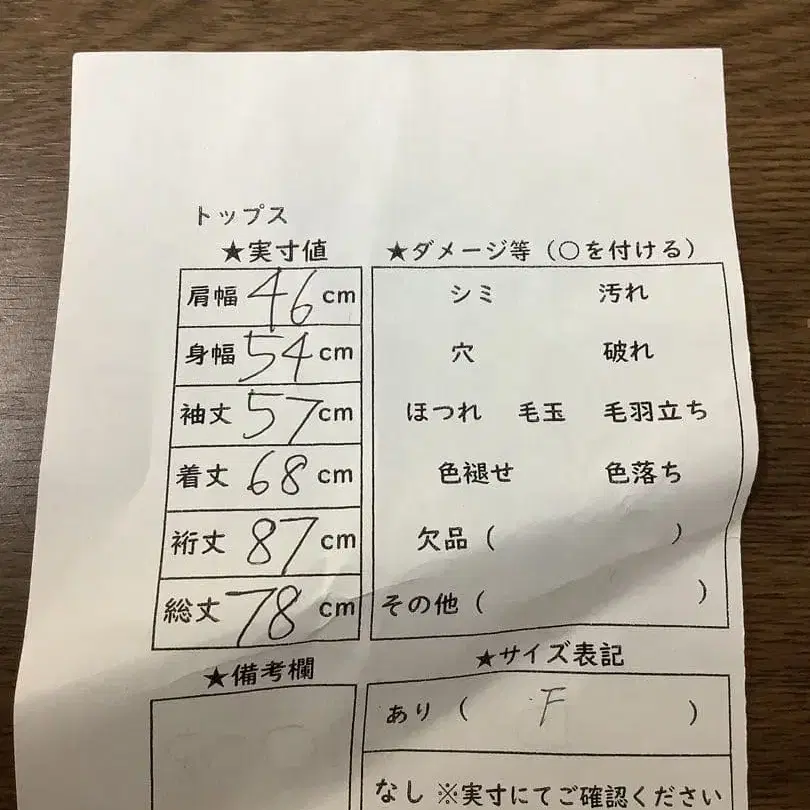 トップス
★実寸値
肩幅 46 cm
身幅 54 cm
袖丈 57 cm
着丈 68 cm
裄丈 87 cm
総丈 78 cm
★ダメージ等（○を付ける）
シミ 汚れ
穴 破れ
ほつれ 毛玉 毛羽立ち
色褪せ 色落ち
欠品（ ）
その他（ ）
★備考欄
★サイズ表記
あり（ F ）
なし ※実寸にてご確認ください